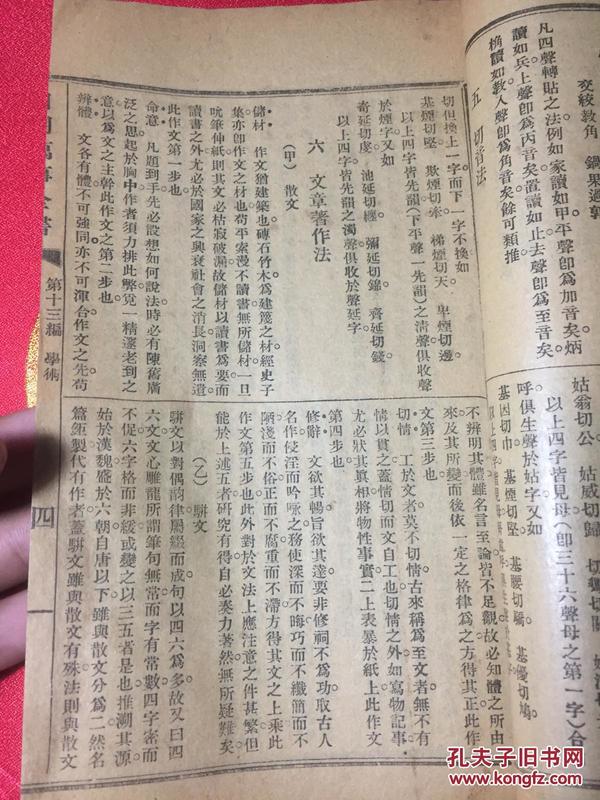 交絞教角　鍋果過郭
凡四聲轉貼之法例如家讀如甲平聲卽爲加音矣炳
讀如兵上聲卽爲丙音矣置讀如止去聲卽爲至音矣
桷讀如教入聲卽爲角音矣餘可類推
五　切音法
姑翁切公　姑威切歸
以上四字皆見母（卽三十六聲母之第一字）合
呼俱生聲於姑字又如
基因切巾　基煙切堅　基腰切驕　基優切鳩
切但換上一字而下一字不換如
基煙切堅　欺煙切牽　梯煙切天　卑煙切邊
以上四字皆先韻（下平聲一先韻）之清聲俱收聲
於煙字又如
奇延切虔　池延切纏　彌延切綿　齊延切錢
以上四字皆先韻之濁聲俱收於聲延字
六　文章著作法
（甲）　散文
儲材　作文猶建築也磚石竹木爲建築之材經史子
集亦卽作文之材也苟平素漫不讀書無所儲材一旦
吮筆伸紙則其文必枯寂破漏故儲材以讀書爲要而
讀書之外尤必於國家之興衰社會之消長洞察無遺
此作文第一步也
命意　凡題到手先必設想如何說法時必有陳舊廣
泛之思起於胸中作者須力排此弊覓一精邃老到之
意以爲文之主幹此作文之第二步也
辨體　文各有體不可強同亦不可渾合作文之先苟
不辨明其體雖名言至論皆不足觀故必知體之所由
來及其所變而後依一定之格律爲之方得其正此作
文第三步也
切情　工於文者莫不切情古來稱爲至文者無不有
情以貫之蓋情切而文自工也切情之外如寫物記事
尤必狀其真相將物性事實一一上表暴於紙上此作文
第四步也
修辭　文欲其暢旨欲其達要非修詞不爲功取古人
名作侵淫而吟咏之務使深而不晦巧而不纖簡而不
陋淺而不俗正而不腐重而不滯方得其文之上乘此
作文第五步也此外對於文法上應注意之件甚繁但
能於上述五者硏究有得自必奏力著然無所疑難矣
（乙）　駢文
駢文以對偶韻律屬綴而成句以四六爲多故又曰四
六文文心雕龍所謂筆句無常而字有常數四字密而
不促六字格而非緩或變之以三五者是也推溯其源
始於漢魏盛於六朝自唐以下雖與散文分爲二然名
篇鉅製代有作者蓋駢文雖與散文有殊法則與散文
萬事全書
第十三編　學術
四
孔夫子旧书网
www.kongfz.com